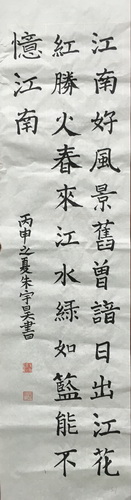 江南好風景舊曾諳日出江花
紅勝火春來江水緑如籃能不
憶江南
丙申之夏朱宇昊書